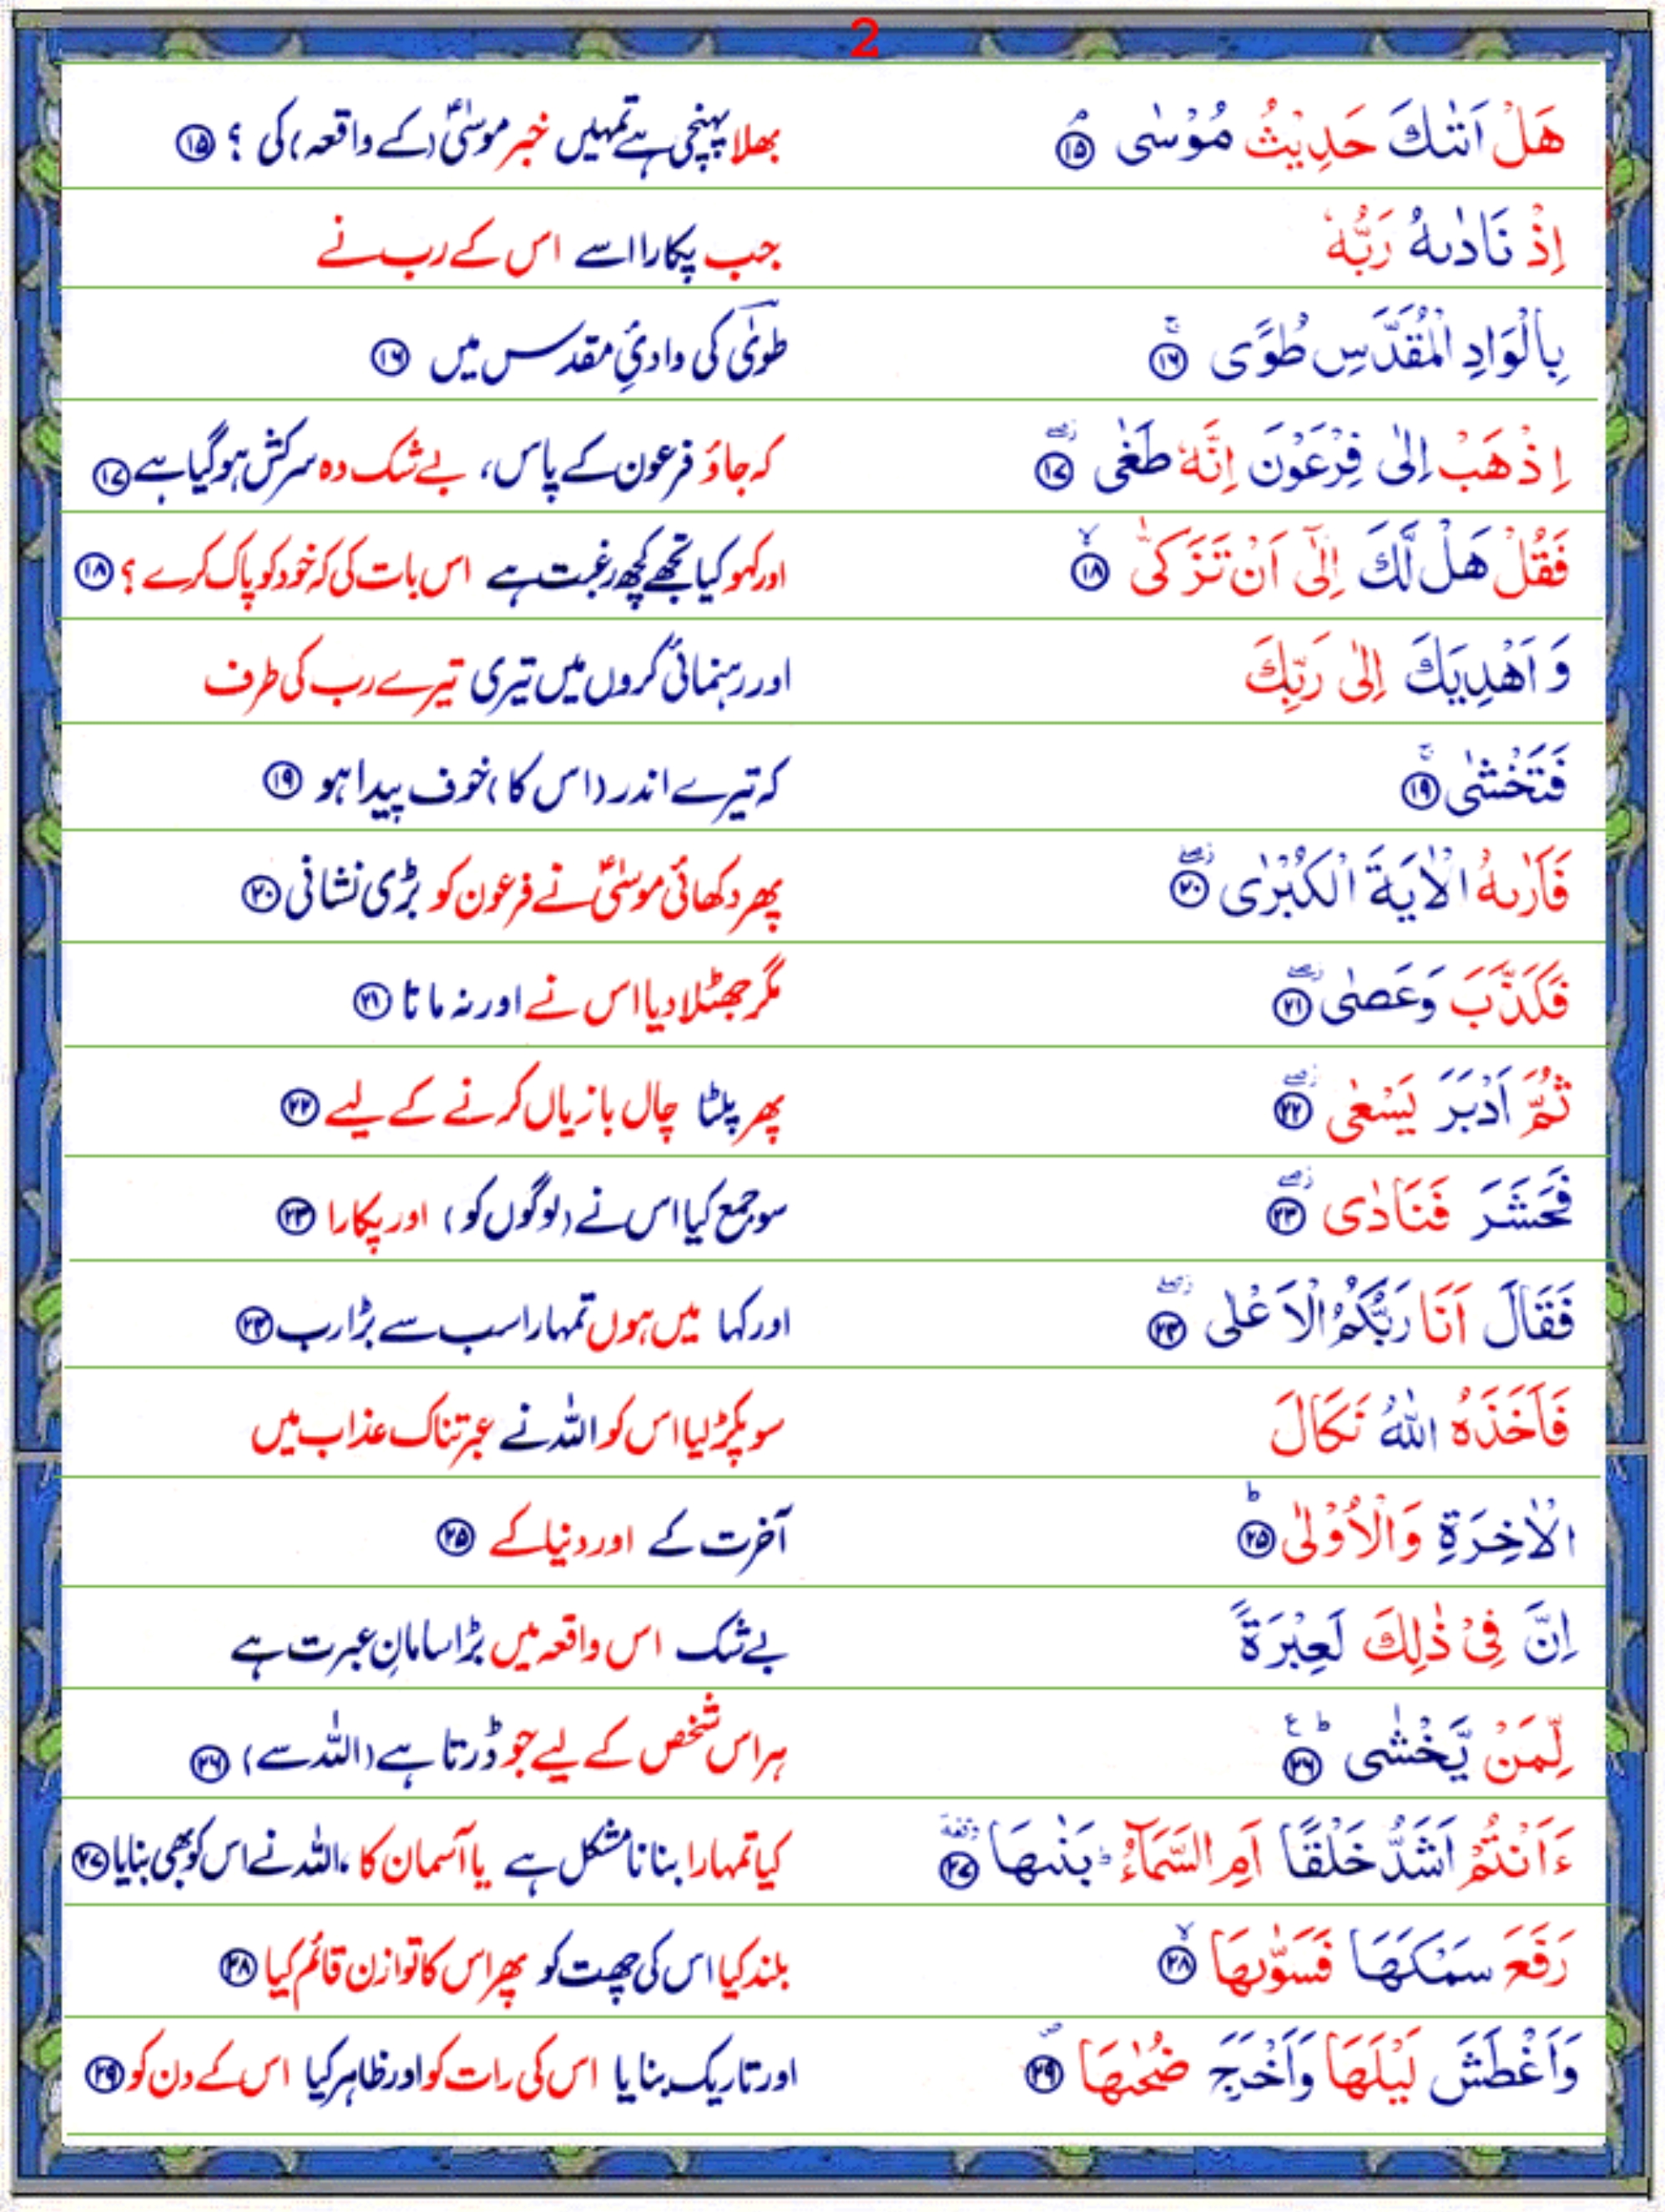 2
هَلْ اَتٰىكَ حَدِيْثُ مُوْسٰى ۘ ⑮ بھلا پہنچی ہے تمہیں خبر موسٰیؑ (کے واقعہ) کی ؟ ⑮
اِذْ نَادٰىهُ رَبُّهٗ جب پکارا اسے اس کے رب نے
بِالْوَادِ الْمُقَدَّسِ طُوًى ۚ ⑯ طویٰ کی وادیِٔ مقدس میں ⑯
اِذْهَبْ اِلٰى فِرْعَوْنَ اِنَّهٗ طَغٰى ۖ ⑰ کہ جاؤ فرعون کے پاس، بے شک وہ سرکش ہو گیا ہے ⑰
فَقُلْ هَلْ لَّكَ اِلٰٓى اَنْ تَزَكّٰى ۙ ⑱ اور کہو کیا تجھے کچھ رغبت ہے اس بات کی کہ خود کو پاک کرے ؟ ⑱
وَ اَهْدِيَكَ اِلٰى رَبِّكَ اور رہنمائی کروں میں تیری تیرے رب کی طرف
فَتَخْشٰى ۚ ⑲ کہ تیرے اندر (اس کا) خوف پیدا ہو ⑲
فَاَرٰىهُ الْاٰيَةَ الْكُبْرٰى ۖ ⑳ پھر دکھائی موسٰیؑ نے فرعون کو بڑی نشانی ⑳
فَكَذَّبَ وَعَصٰى ۖ ㉑ مگر جھٹلا دیا اس نے اور نہ مانا ㉑
ثُمَّ اَدْبَرَ يَسْعٰى ۖ ㉒ پھر پلٹا چال بازیاں کرنے کے لیے ㉒
فَحَشَرَ فَنَادٰى ۖ ㉓ سو جمع کیا اس نے (لوگوں کو) اور پکارا ㉓
فَقَالَ اَنَا رَبُّكُمُ الْاَعْلٰى ۖ ㉔ اور کہا میں ہوں تمہارا سب سے بڑا رب ㉔
فَاَخَذَهُ اللّٰهُ نَكَالَ سو پکڑ لیا اس کو اللہ نے عبرتناک عذاب میں
الْاٰخِرَةِ وَالْاُوْلٰى ؕ ㉕ آخرت کے اور دنیا کے ㉕
اِنَّ فِىْ ذٰلِكَ لَعِبْرَةً بے شک اس واقعہ میں بڑا سامانِ عبرت ہے
لِّمَنْ يَّخْشٰى ؕ ع ㉖ ہر اس شخص کے لیے جو ڈرتا ہے (اللہ سے) ㉖
ءَاَنْتُمْ اَشَدُّ خَلْقًا اَمِ السَّمَآءُ ؕ بَنٰىهَا وقفة ㉗ کیا تمہارا بنانا مشکل ہے یا آسمان کا ،اللہ نے اس کو بھی بنایا ㉗
رَفَعَ سَمْكَهَا فَسَوّٰىهَا ۙ ㉘ بلند کیا اس کی چھت کو پھر اس کا توازن قائم کیا ㉘
وَاَغْطَشَ لَيْلَهَا وَاَخْرَجَ ضُحٰىهَا ۪ ㉙ اور تاریک بنایا اس کی رات کو اور ظاہر کیا اس کے دن کو ㉙